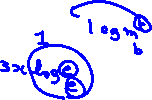 log m b
1
3x log e e